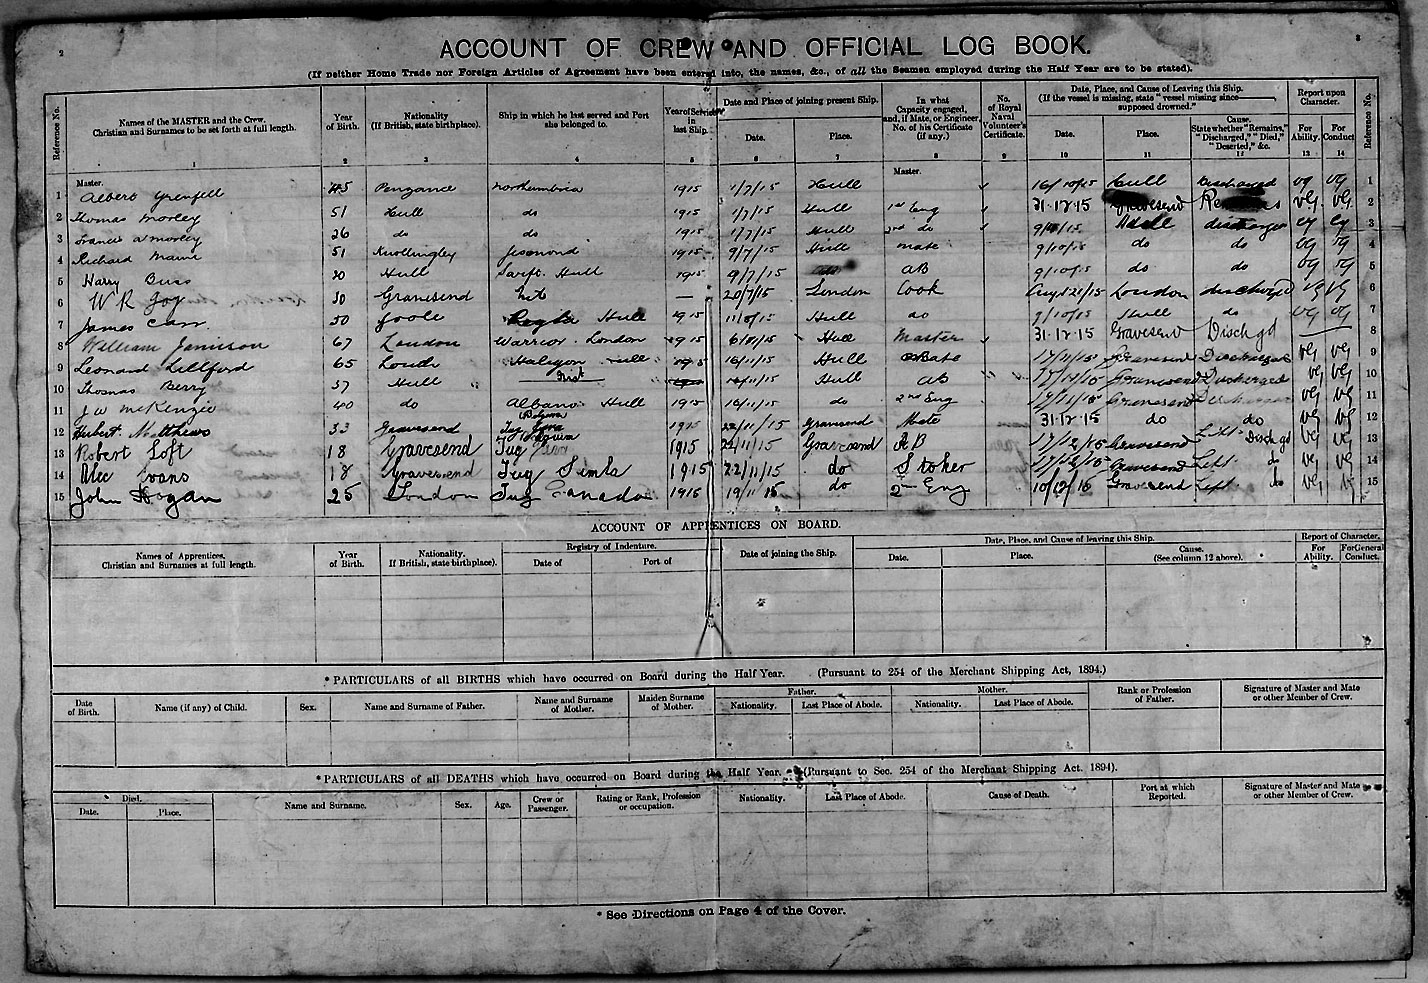 2
3
ACCOUNT OF CREW AND OFFICIAL LOG BOOK.
(If neither Home Trade nor Foreign Articles of Agreement have been entered into, the names, &c., of all the Seamen employed during the Half Year are to be stated).
Reference No. Names of the MASTER and the Crew. Christian and Surnames to be set forth at full length. Year of Birth. Nationality (If British, state birthplace). Ship in which he last served and Port she belonged to. Year of Service in last Ship. Date and Place of joining present Ship. Date. Place. In what Capacity engaged, and, if Mate, or Engineer, No. of his Certificate (if any.) No. of Royal Naval Volunteer's Certificate. Date, Place, and Cause of Leaving this Ship. (If the vessel is missing, state "vessel missing since——, supposed drowned." Date. Place. Cause. State whether "Remains," "Discharged," "Died," "Deserted," &c. Report upon Character. For Ability. For Conduct Reference No.
1 2 3 4 5 6 7 8 9 10 11 12 13 14
Master. Master.
1 Albert Grenfell 45 Penzance Northumbria 1915 1/7/15 Hull 16/10/15 Hull Discharged vg vg 1
2 Thomas Morley 51 Hull do 1915 1/7/15 Hull 1st Eng 31-12-15 Gravesend VG VG 2
3 Francis a morley 26 do do 1915 1/7/15 Hull 2nd do discharged vg vg 3
4 Richard 51 Knottingley Jesmond 1915 9/7/15 Hull mate 9/10/15 do do vg vg 4
5 Harry Buss 20 Hull Swift Hull 1915 9/7/15 AB 9/10/15 do do vg vg 5
6 W R Joy 30 Gravesend — 20/7/15 London Cook Augt 21/15 London discharged VG VG 6
7 James Carr 50 Goole Hull 1915 Hull do 9/10/15 Hull do VG VG 7
8 William Jamieson 67 London Warrior London 1915 Hull Master 31-12-15 Gravesend Dischgd 8
9 Leonard Lillford 65 Louth Halcyon Hull 1915 16/11/15 Hull Gravesend Discharged VG VG 9
10 Thomas Berry 57 Hull First Hull AB Gravesend Discharged VG VG 10
11 J W McKenzie 40 do Albano Hull 1915 16/11/15 do 2nd Eng Gravesend VG VG 11
12 Hubert Matthews 33 Gravesend Tug 1915 22/11/15 Gravesend Mate 31-12-15 do do VG VG 12
13 Robert Loft 18 Gravesend Tug 1915 22/11/15 Gravesend AB 17/12/15 Gravesend Left Dischgd VG VG 13
14 Alec Evans 18 Gravesend Tug Simla 1915 22/11/15 do Stoker Gravesend Left do VG VG 14
15 John Hogan 25 London Tug Canada 19/11 15 do 2nd Eng Gravesend Left do VG 15
ACCOUNT OF APPRENTICES ON BOARD.
Names of Apprentices. Christian and Surnames at full length. Year of Birth. Nationality. If British, state birthplace). Registry of Indenture. Date of Port of Date of joining the Ship. Date, Place, and Cause of leaving this Ship. Date. Place. Cause. (See column 12 above). Report of Character. For Ability. For General Conduct.
*PARTICULARS of all BIRTHS which have occurred on Board during the Half Year. (Pursuant to 254 of the Merchant Shipping Act, 1894.)
Date of Birth. Name (if any) of Child. Sex. Name and Surname of Father. Name and Surname of Mother. Maiden Surname of Mother. Father. Nationality. Last Place of Abode. Mother. Nationality. Last Place of Abode. Rank or Profession of Father. Signature of Master and Mate or other Member of Crew.
*PARTICULARS of all DEATHS which have occurred on Board during the Half Year. (Pursuant to Sec. 254 of the Merchant Shipping Act. 1894).
Died. Date. Place. Name and Surname. Sex. Age. Crew or Passenger. Rating or Rank, Profession or occupation. Nationality. Last Place of Abode. Cause of Death. Port at which Reported. Signature of Master and Mate or other Member of Crew.
* See Directions on Page 4 of the Cover.